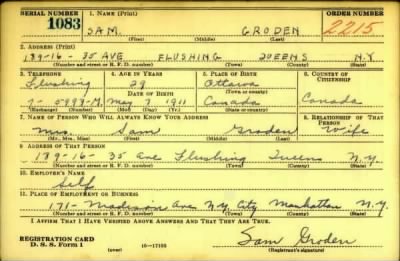 SERIAL NUMBER 1. NAME (Print) ORDER NUMBER
1083 SAM GRODEN 2215
(First) (Middle) (Last)
2. ADDRESS (Print)
189-16-35 AVE FLUSHING QUEENS N.Y.
(Number and street or R. F. D. number) (Town) (County) (State)
3. TELEPHONE 4. AGE IN YEARS 5. PLACE OF BIRTH 6. COUNTRY OF CITIZENSHIP
Flushing 29 Ottawa
DATE OF BIRTH (Town or county)
May 7 1911 Canada Canada
(Exchange) (Number) (Mo.) (Day) (Yr.) (State or country)
7. NAME OF PERSON WHO WILL ALWAYS KNOW YOUR ADDRESS 8. RELATIONSHIP OF THAT PERSON
Mrs. Sam Groden Wife
(Mr., Mrs., Miss) (First) (Middle) (Last)
9. ADDRESS OF THAT PERSON
189-16-35 Ave Flushing Queens N.Y.
(Number and street or R. F. D. number) (Town) (County) (State)
10. EMPLOYER'S NAME
Self
11. PLACE OF EMPLOYMENT OR BUSINESS
171- Madison Ave N.Y. City Manhattan N.Y.
(Number and street or R. F. D. number) (Town) (County) (State)
I AFFIRM THAT I HAVE VERIFIED ABOVE ANSWERS AND THAT THEY ARE TRUE.
REGISTRATION CARD
D. S. S. Form 1 (over) 16-17105 Sam Groden
(Registrant's signature)